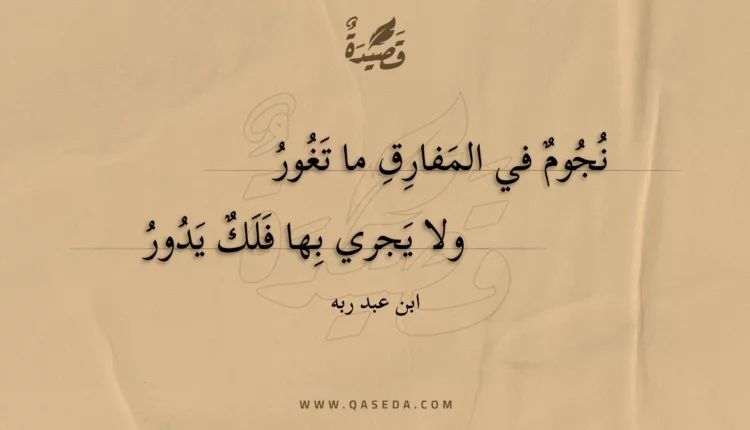 قَصِيدَةٌ
نُجُومٌ في المَفارِقِ ما تَغُورُ
ولا يَجري بِها فَلَكٌ يَدُورُ
ابن عبد ربه
WWW.QASEDA.COM